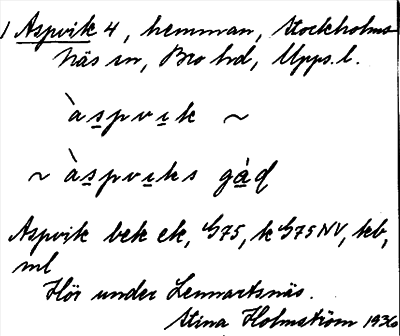 1 Aspvik 4, hemman, Stockholms-
Näs sn, Bro hd, Upps. l.
àspvik ~
~ àspviks gåɖ
Aspvik bek ek, G75, k G75NV, kb,
ml
Hör under Lennartsnäs.
Stina Holmström 1936